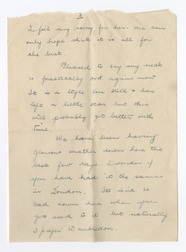 2
I felt very sorry for her. One can
only hope that it is all for
the best.
Pleased to say my neck
is practically all right now
It is a little stiff & has
left a little scar but this
will probably get better with
time.
We have been having
glorious weather down here the
last few days. I wonder if
you have had it the same
in London. It is not so
bad down here when you
get used to it but naturally
I prefer Wimbledon.